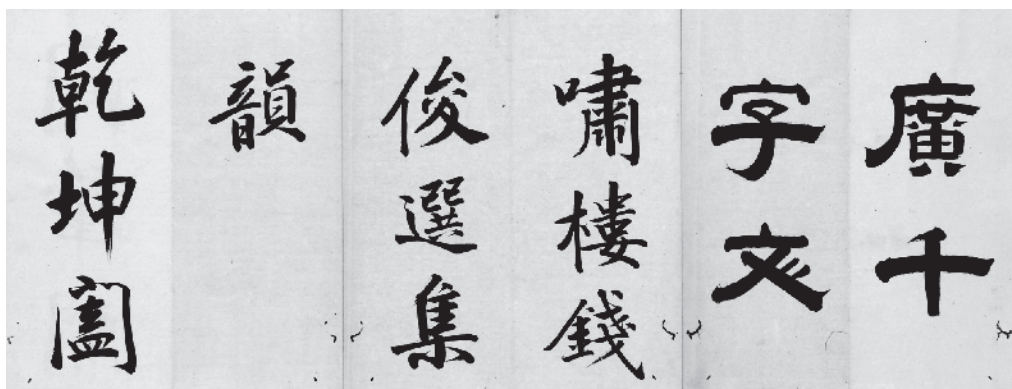 廣千
字文
嘯樓錢
俊選集
韻
乾坤闔